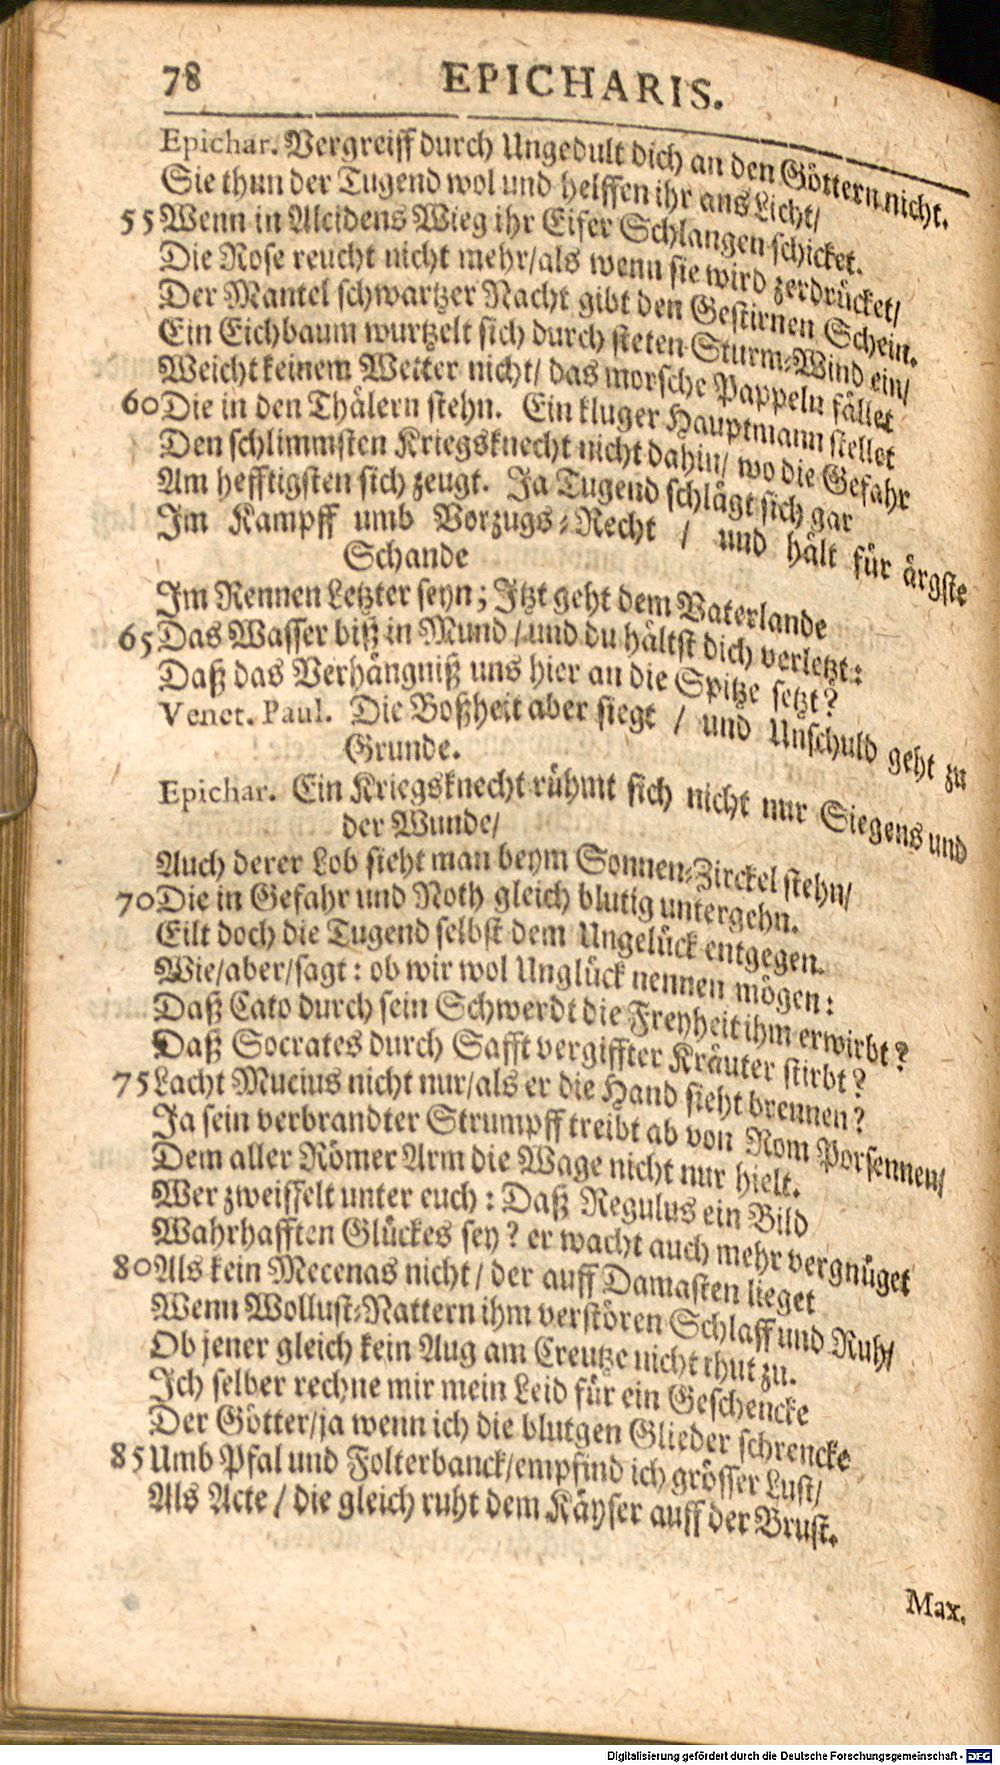 78 EPICHARIS.
Epichar. Vergreiff durch Ungedult dich an den Göttern nicht.
Sie thun der Tugend wol und helffen ihr ans Licht/
55 Wenn in Alcidens Wieg ihr Eifer Schlangen schicket.
Die Rose reucht nicht mehr/als wenn sie wird zerdrücket/
Der Mantel schwartzer Nacht gibt den Gestirnen Schein.
Ein Eichbaum wurtzelt sich durch steten Sturm-Wind ein/
Weicht keinem Wetter nicht/ das morsche Pappeln fället
60 Die in den Thälern stehn. Ein kluger Hauptmann stellet
Den schlimmsten Kriegsknecht nicht dahin/ wo die Gefahr
Am hefftigsten sich zeugt. Ja Tugend schlägt sich gar
Im Kampff umb Vorzugs-Recht / und hält für ärgste
Schande
Im Rennen Letzter seyn; Itzt geht dem Vaterlande
65 Das Wasser biß in Mund / und du hältst dich verletzt:
Daß das Verhängniß uns hier an die Spitze setzt?
Venet. Paul. Die Boßheit aber siegt / und Unschuld geht zu
Grunde.
Epichar. Ein Kriegsknecht rühmt sich nicht nur Siegens und
der Wunde/
Auch derer Lob sieht man beym Sonnen-Zirckel stehn/
70 Die in Gefahr und Noth gleich blutig untergehn.
Eilt doch die Tugend selbst dem Ungelück entgegen.
Wie/aber/sagt: ob wir wol Unglück nennen mögen:
Daß Cato durch sein Schwerdt die Freyheit ihm erwirbt?
Daß Socrates durch Safft vergiffter Kräuter stirbt?
75 Lacht Mucius nicht nur/als er die Hand sieht brennen?
Ja sein verbrandter Strumpff treibt ab von Rom Porsennen/
Dem aller Römer Arm die Wage nicht nur hielt.
Wer zweiffelt unter euch: Daß Regulus ein Bild
Wahrhafften Glückes sey? er wacht auch mehr vergnüget
80 Als kein Mecenas nicht / der auff Damasten lieget
Wenn Wollust-Nattern ihm verstören Schlaff und Ruh/
Ob jener gleich kein Aug am Creutze nicht thut zu.
Ich selber rechne mir mein Leid für ein Geschencke
Der Götter/ja wenn ich die blutgen Glieder schrencke
85 Umb Pfal und Folterbanck/empfind ich grösser Lust/
Als Acte / die gleich ruht dem Käyser auff der Brust.
Max.
Digitalisierung gefördert durch die Deutsche Forschungsgemeinschaft - DFG